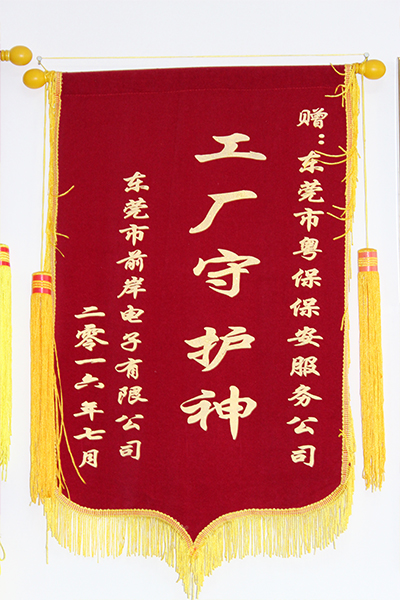 赠：东莞市粤保保安服务公司
工厂守护神
东莞市前岸电子有限公司
二零一六年七月